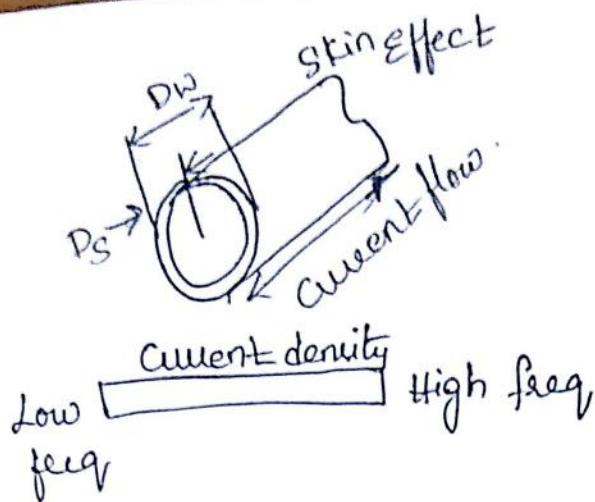 Skin Effect
DW
DS
Current flow.
Current density
Low
freq
High freq